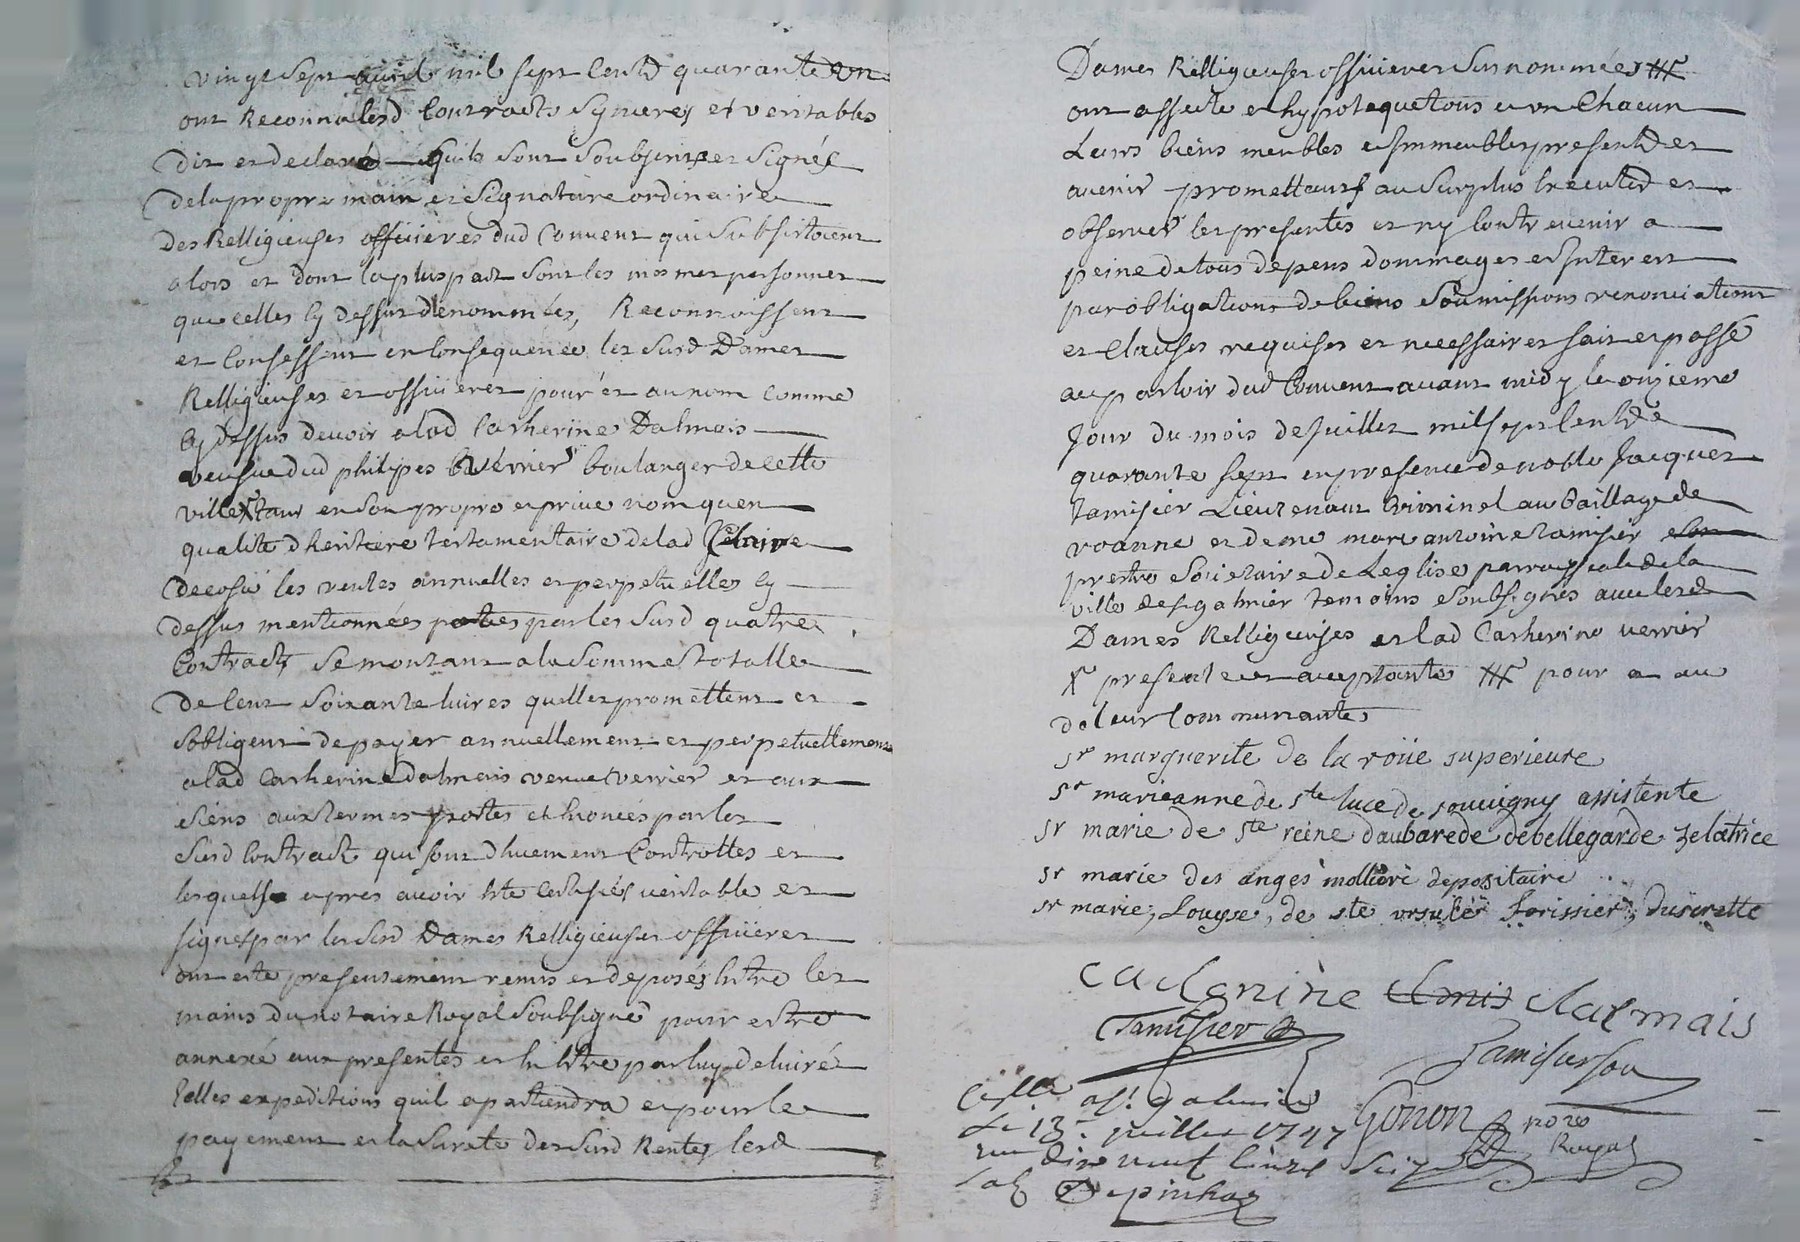 vingt sept avril mil sept Cents quarante un
ont Reconnu lesd Contracts synceres et veritables
dit et declaré quils sont soubscrits et signés
de la propre main et signature ordinaire
des Relligieuses officieres dud Convent qui subsistoient
alors et dont la plus part sont les mesmes personnes
que celles cy dessus denommées, Reconnoissent
et Confessent en Consequence les susd Dames
Relligieuses et officieres pour et au nom comme
cy dessus devoir a lad Catherine Dalmais
veufve dud philipes verrier boulanger de cette
ville tant en son propre et privé nom quen
qualité dheritiere testamentaire de lad Claire
les rentes annuelles et perpetuelles cy
dessus mentionnées portées par les susd quatre
Contracts se montant a la somme totalle
de cent soixante livres quelles promettent et
sobligent de payer annuellement et perpetuellement
a lad Catherine dalmais veuve verrier et aux
siens aux termes portes et énoncés par les
susd Contracts qui sont dhuement Controllés et
lesquels apres avoir esté certifiés veritable et
signés par les susd Dames Relligieuses officieres
ont esté presentement remis et deposés entre les
mains du notaire Royal soubsigné pour estre
annexé aux presentes et en estre par luy delivré
telles expeditions quil apartiendra et pour le
payement et la sureté des susd Rentes lesd
Dames Relligieuses officieres susnommées
ont affecté et hypotequé tous et un Chacun
Leurs biens meubles et immeubles presents et
avenir promettant au surplus executer et
observer les presentes et ny Contrevenir a
peine de tous depens dommages et interest
par obligations de biens soumissions renonciations
et Clauses requises et necessaires fait et passé
au parloir dud Convent avant midy le onzieme
Jour du mois de Juillet mil sept cents
quarante sept en presence de noble Jacques
tamisier Lieutenant Criminel au Baillage de
roanne et de me marc antoine tamisier
prestre societaire de Leglise parroyssiale de la
ville de st galmier temoins soubsignés avec lesd
Dames Relligieuses et lad Catherine verrier
presente et acceptante pour et au
de leur Communauté
sr marguerite de la roüe superieure
sr marieanne de ste luce de souvigny assistente
sr marie de ste reine daubarede de bellegarde zelatrice
sr marie des anges molliere depositaire
sr marie, Louyse, de ste ursule forissier, discrette
Caterine dalmais
Tamisier
Tamisier
Gonon nore
Royal
a st galmier
Le 13e juillet 1747
dix neuf livres
Depinhac